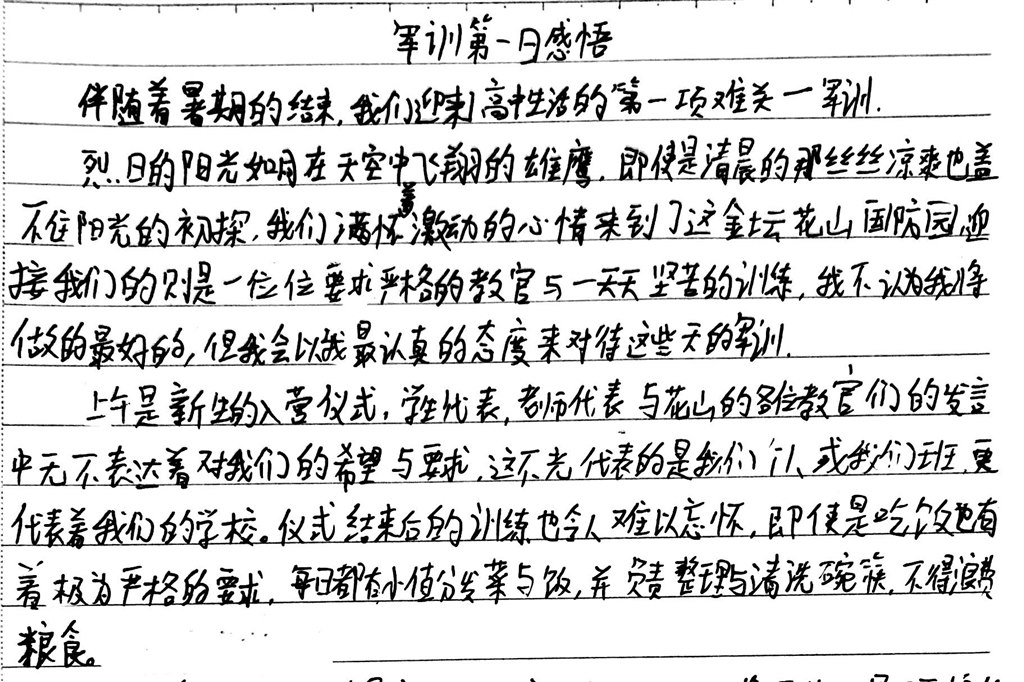 军训第一日感悟
伴随着暑期的结束,我们迎来了高中生活的第一项难关一军训.
烈日的阳光如同在天空中飞翔的雄鹰,即使是清晨的那丝丝凉爽也盖
不住阳光的初探,我们满怀着激动的心情来到了这金坛花山国防园,迎
接我们的则是一位位要求严格的教官与一天天坚苦的训练,我不认为我将
做的最好的,但我会以我最认真的态度来对待这些天的军训.
上午是新生的入营仪式,学生代表,老师代表与花山的各位教官们的发言
中无不表达着对我们的希望与要求,这不光代表的是我们个人或我们班,更
代表着我们的学校。仪式结束后的训练也令人难以忘怀,即使是吃饭也有
着极为严格的要求,每日都有小值分发菜与饭,并负责整理与清洗碗筷,不得浪费
粮食。